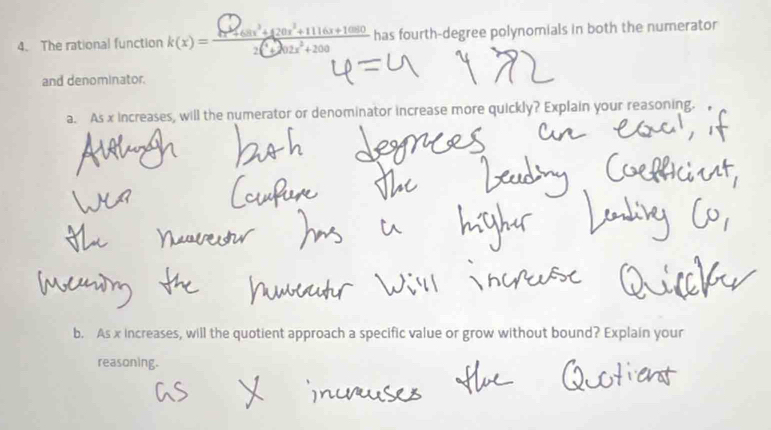 4. The rational function k(x) = +68x³+420x²+1116x+1080 / 2 02x²+200 has fourth-degree polynomials in both the numerator
4=4 4 > 2
and denominator.
a. As x increases, will the numerator or denominator increase more quickly? Explain your reasoning.
Although both degrees are equal, if
we Compare the Leading Coefficient,
the numerator has a higher Leading Co,
meaning the numerator will increase Quicker
b. As x increases, will the quotient approach a specific value or grow without bound? Explain your
reasoning.
as x increases the Quotient